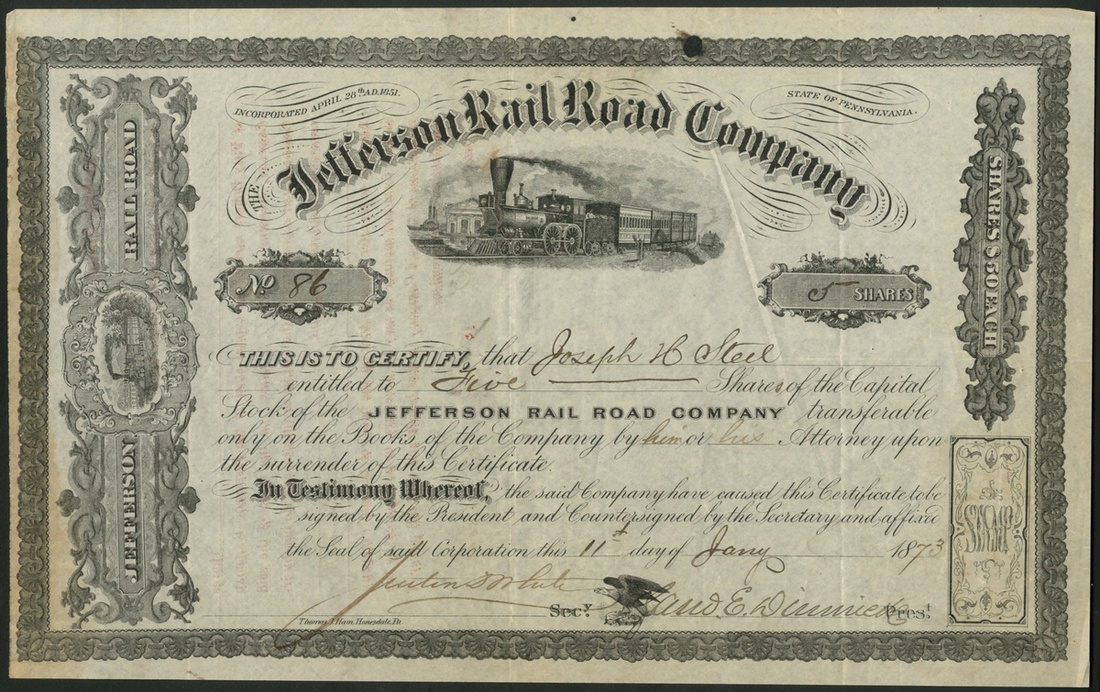 INCORPORATED APRIL 28th A.D. 1851.
STATE OF PENNSYLVANIA.
THE Jefferson Rail Road Company
JEFFERSON RAIL ROAD
SHARES $50 EACH
No 86
5 SHARES
THIS IS TO CERTIFY, that Joseph H Steel
entitled to Five Shares of the Capital
Stock of the JEFFERSON RAIL ROAD COMPANY transferable
only on the Books of the Company by him or his Attorney upon
the surrender of this Certificate.
In Testimony Whereof, the said Company have caused this Certificate to be
signed by the President and Countersigned by the Secretary and affixed
the Seal of said Corporation this 11th day of Jany 1873
Secy
E. Dimmick Prest
Thomas J. Ham, Honesdale, Pa.